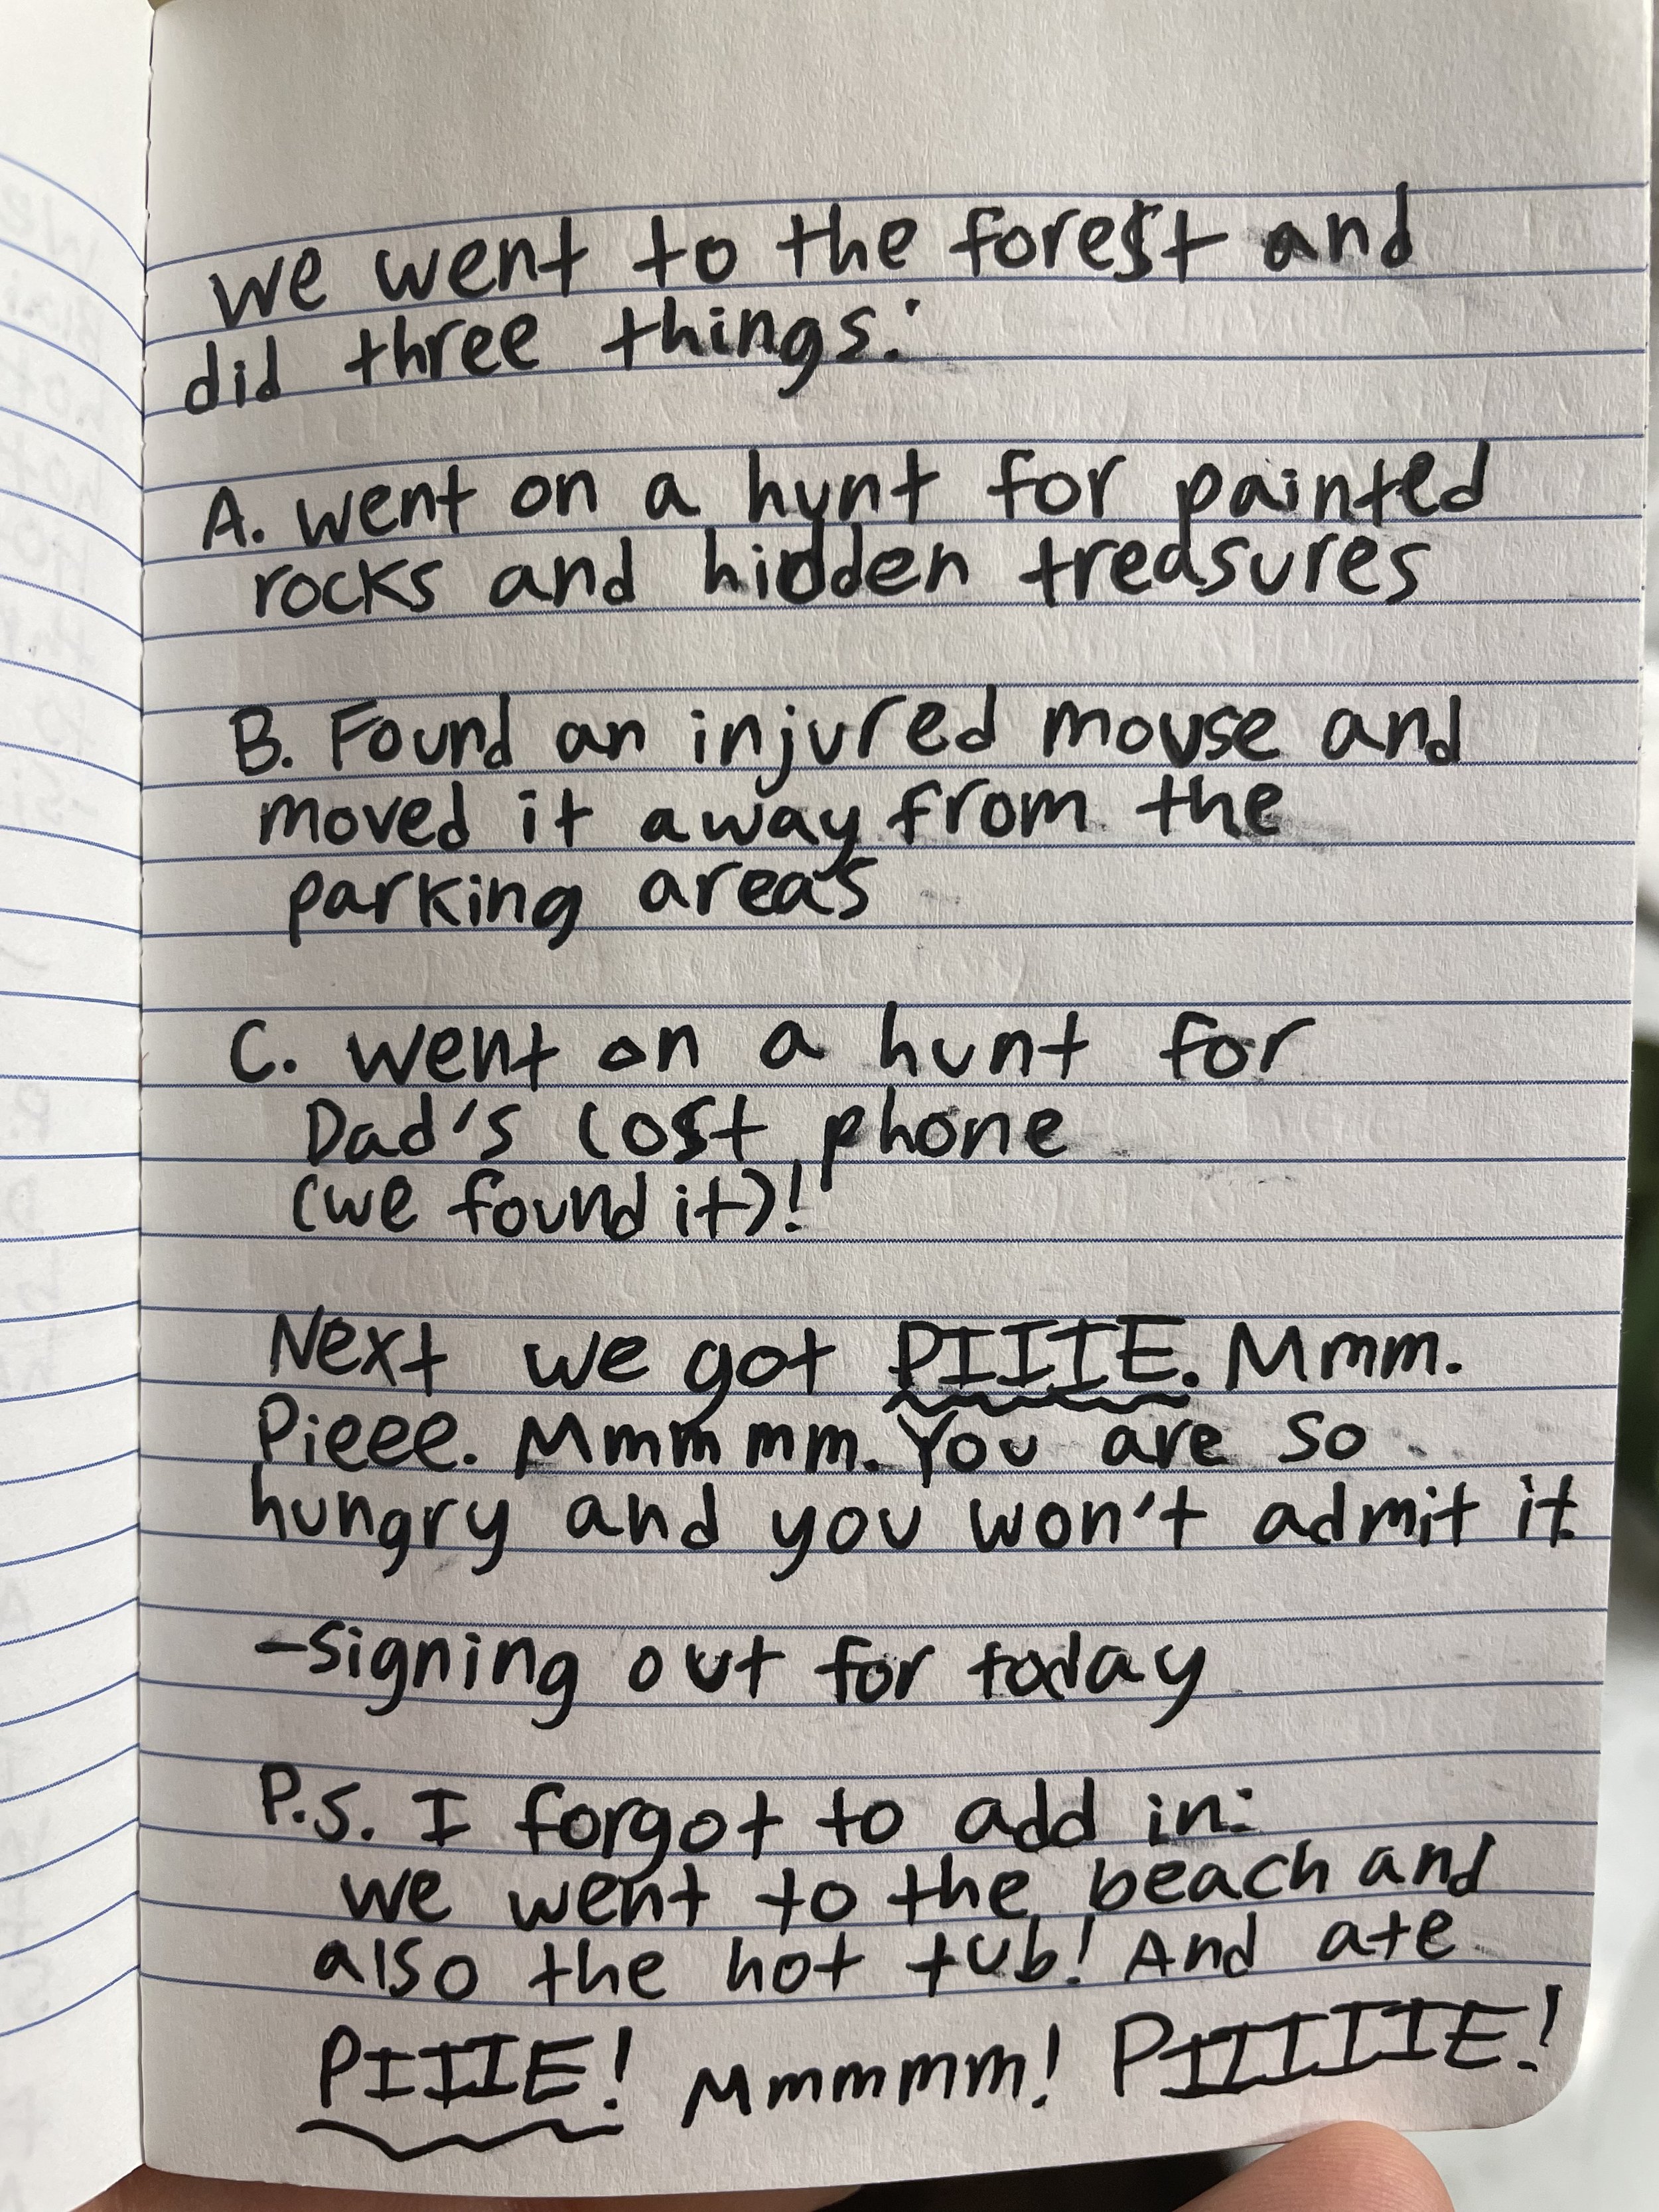 we went to the forest and
did three things:
A. went on a hunt for painted
rocks and hidden treasures
B. Found an injured mouse and
moved it away from the
parking areas
C. went on a hunt for
Dad's lost phone
(we found it)!
Next we got PIIIE. Mmm.
Pieee. Mmmmm. You are so
hungry and you won't admit it.
-signing out for today
P.S. I forgot to add in:
we went to the beach and
also the hot tub! And ate
PIIIE! Mmmmm! PIIIIIE!